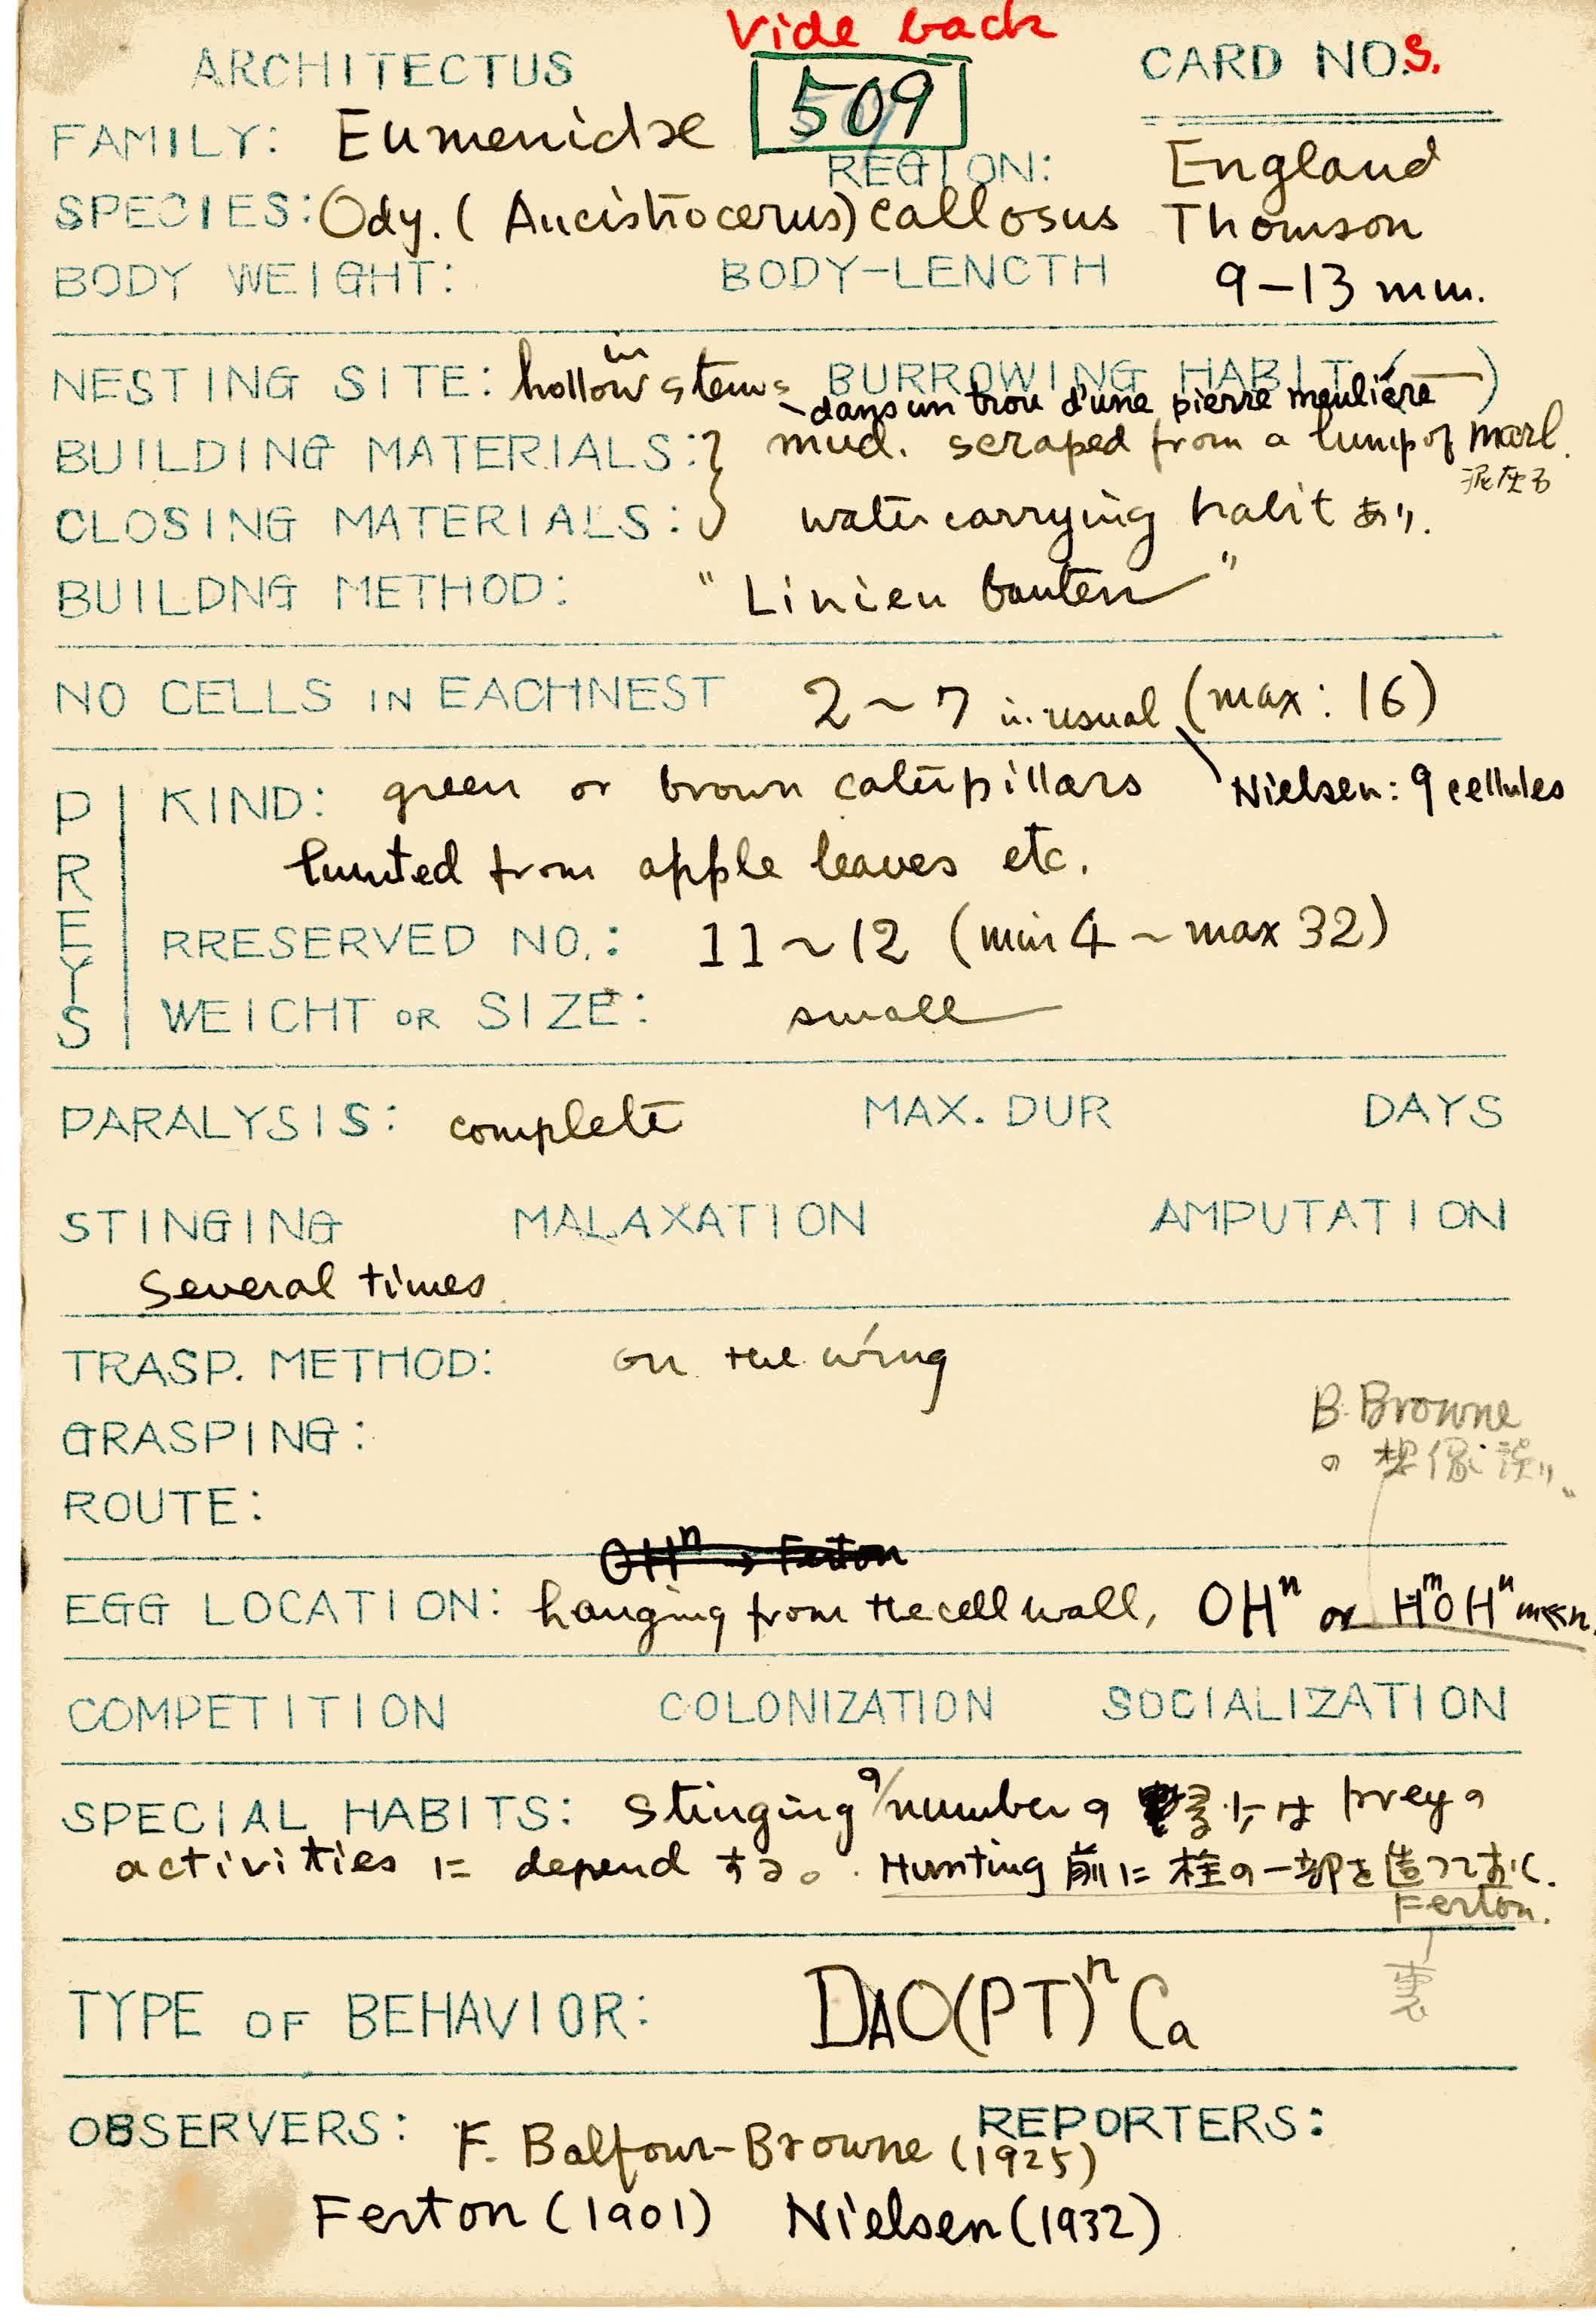 Vide back
ARCHITECTUS 509 CARD NO.S.
FAMILY: Eumenidae REGION: England
SPECIES: Ody. (Ancistrocerus) callosus Thomson
BODY WEIGHT: BODY-LENCTH 9–13 mm.
NESTING SITE: in hollow stems BURROWING HABIT (—)
dans un trou d'une pierre meulière
BUILDING MATERIALS: } mud. scraped from a lump of marl.
CLOSING MATERIALS: } water carrying habit あり.
BUILDNG METHOD: "Linien bauten"
NO CELLS IN EACHNEST 2~7 in usual (max: 16)
Nielsen: 9 cellules
PREYS
KIND: green or brown caterpillars
hunted from apple leaves etc.
RRESERVED NO.: 11~12 (min 4 ~ max 32)
WEICHT OR SIZE: small
PARALYSIS: complete MAX. DUR DAYS
STINGING MALAXATION AMPUTATION
Several times
TRASP. METHOD: on the wing
GRASPING:
B. Browne
の想像誤り
ROUTE:
OHⁿ → Ferton
EGG LOCATION: hanging from the cell wall, OHⁿ or HᵐOHⁿ m<<n.
COMPETITION COLONIZATION SOCIALIZATION
SPECIAL HABITS: Stinging の number の は prey の
activities に depend する。 Hunting 前に柱の一部を造っておく.
Ferton.
TYPE OF BEHAVIOR: DAO(PT)ⁿCa
OBSERVERS: F. Balfour-Browne (1925) REPORTERS:
Ferton (1901) Nielsen (1932)